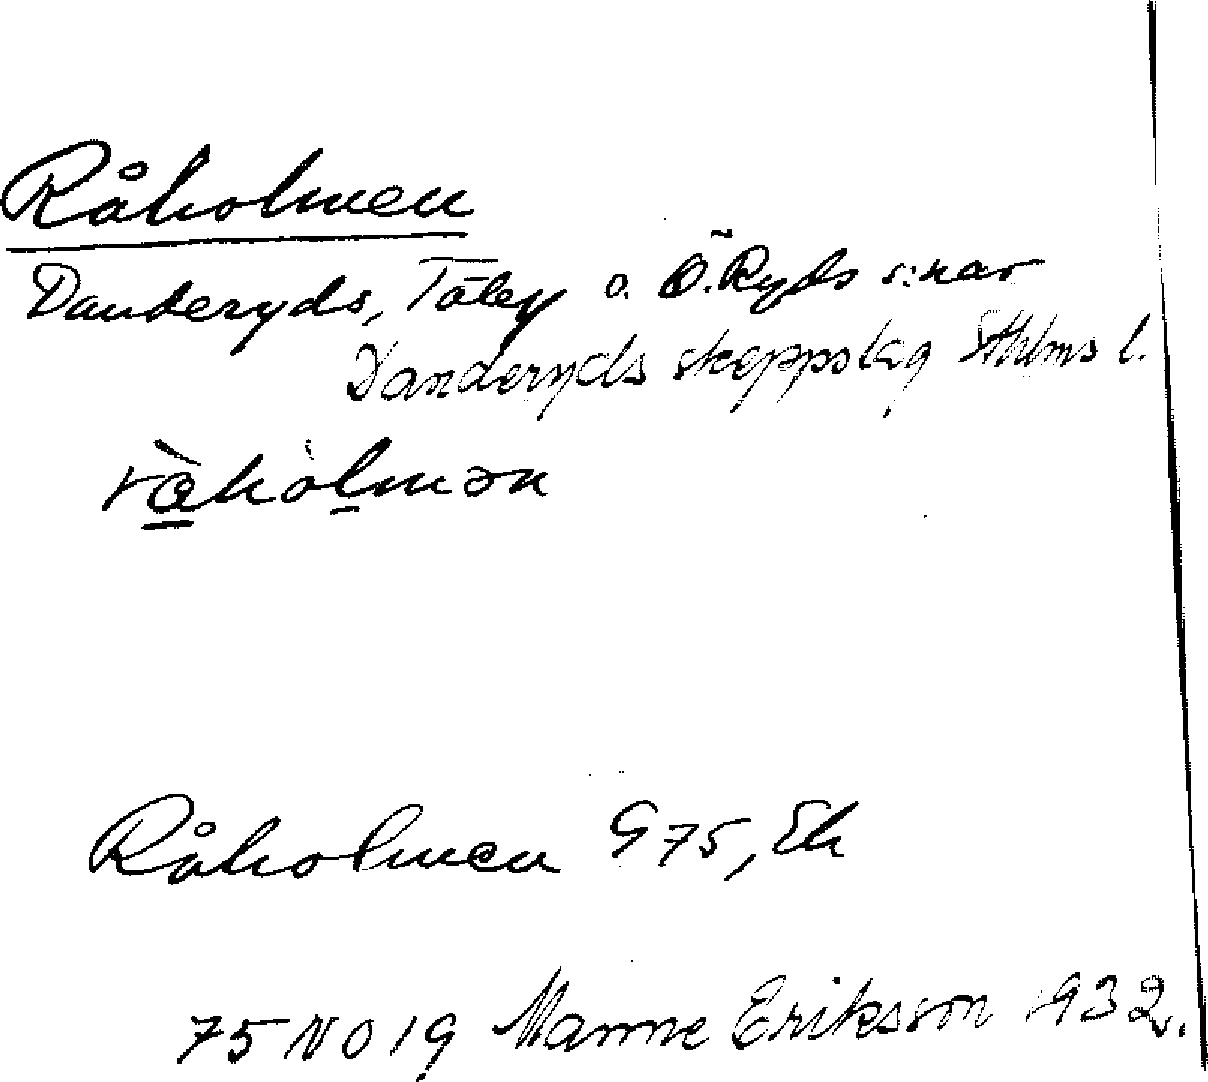 Råholmen
Danderyds, Täby o. Ö. Ryds s:nar
Danderyds skeppslag Sthlms l.
Råholmen G 75, Ek
75 NO 19 Manne Eriksson 1932.